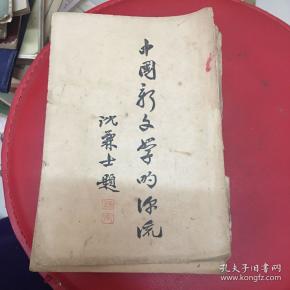 中國新文学的源流
沈兼士題
孔夫子旧书网